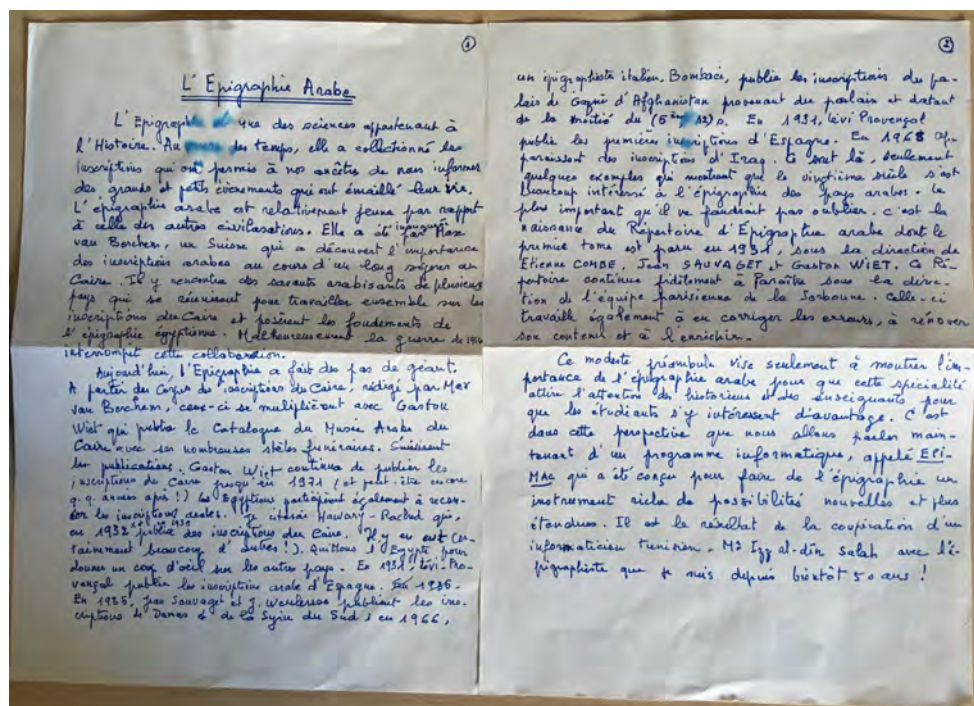 1
L'Epigraphie Arabe
L'Epigraphie est une des sciences appartenant à
l'Histoire. Au cours des temps, elle a collectionné les
Inscriptions qui ont permis à nos ancêtres de nous informer
des grands et petits évènements qui ont émaillé leur vie.
L'épigraphie arabe est relativement jeune par rapport
à celle des autres civilisations. Elle a été inaugurée par Max
van Berchem, un Suisse qui a découvert l'importance
des inscriptions arabes au cours d'un long séjour au
Caire. Il y rencontra des savants arabisants de plusieurs
pays qui se réunirent pour travailler ensemble sur les
inscriptions du Caire et posèrent les fondements de
l'épigraphie égyptienne. Malheureusement la guerre de 1914
interrompit cette collaboration.
Aujourd'hui, l'Epigraphie a fait des pas de géant.
A partir du Corpus des inscriptions du Caire, rédigé par Max
van Berchem, ceux-ci se muliplièrent avec Gaston
Wiet qui publia le Catalogue du Musée Arabe du
Caire avec ses nombreuses stèles funéraires. Suivirent
les publications. Gaston Wiet continua de publier les
inscriptions du Caire jusqu'en 1971 (et peut-être encore
q.q. années après!) Les Egyptiens participèrent également à recen-
ser les inscriptions arabes. Je citerai Hawary-Rached qui,
en 1932 publia des inscriptions du Caire. Il y en eut cer-
tainement beaucoup d'autres!). Quittons l'Egypte pour
donner un coup d'œil sur les autres pays. En 1931: Lévi-Pro-
vençal publie les inscriptions arabe d'Espagne. En 1935.
En 1935, Jean Sauvaget et J. Weulersse publient les ins-
criptions de Damas et de la Syrie du Sud; en 1966,
2
un épigraphiste italien, Bombaci, publie les inscriptions du pa-
lais de Gazni d'Afghanistan provenant du palais et datant
de la moitié du
En 1931, Lévi Provençal
publie les premières inscriptions d'Espagne. En 1968 ap-
paraissent des inscriptions d'Iraq. Ce sont là, seulement
quelques exemples qui montrent que le vingtième siècle s'est
beaucoup intéressé à l'épigraphie des pays arabes. Le
plus important qu'il ne faudrait pas oublier, c'est la
naissance du Répertoire d'Épigraphie arabe dont le
premier tome est paru en 1931, sous la direction de
Etienne COMBE, Jean SAUVAGET et Gaston WIET. Ce Ré-
pertoire continue fidèlement à paraître sous la direc-
tion de l'équipe parisienne de la Sorbonne. Celle-ci
travaille également à en corriger les erreurs, à rénover
son contenu et à l'enrichir.
Ce modeste préambule vise seulement à montrer l'im-
portance de l'épigraphie arabe pour que cette spécialité
attire l'attention des historiens et des enseignants pour
que les étudiants s'y intéressent d'avantage. C'est
dans cette perspective que nous allons parler main-
tenant d'un programme informatique, appelé EPI-
MAC qui a été conçu pour faire de l'épigraphie un
instrument riche de possibilités nouvelles et plus
étendues. Il est le résultat de la coopération d'un
informaticien tunisien, Mr Izz al-dîn Salah avec l'é-
pigraphiste que je suis depuis bientôt 50 ans!